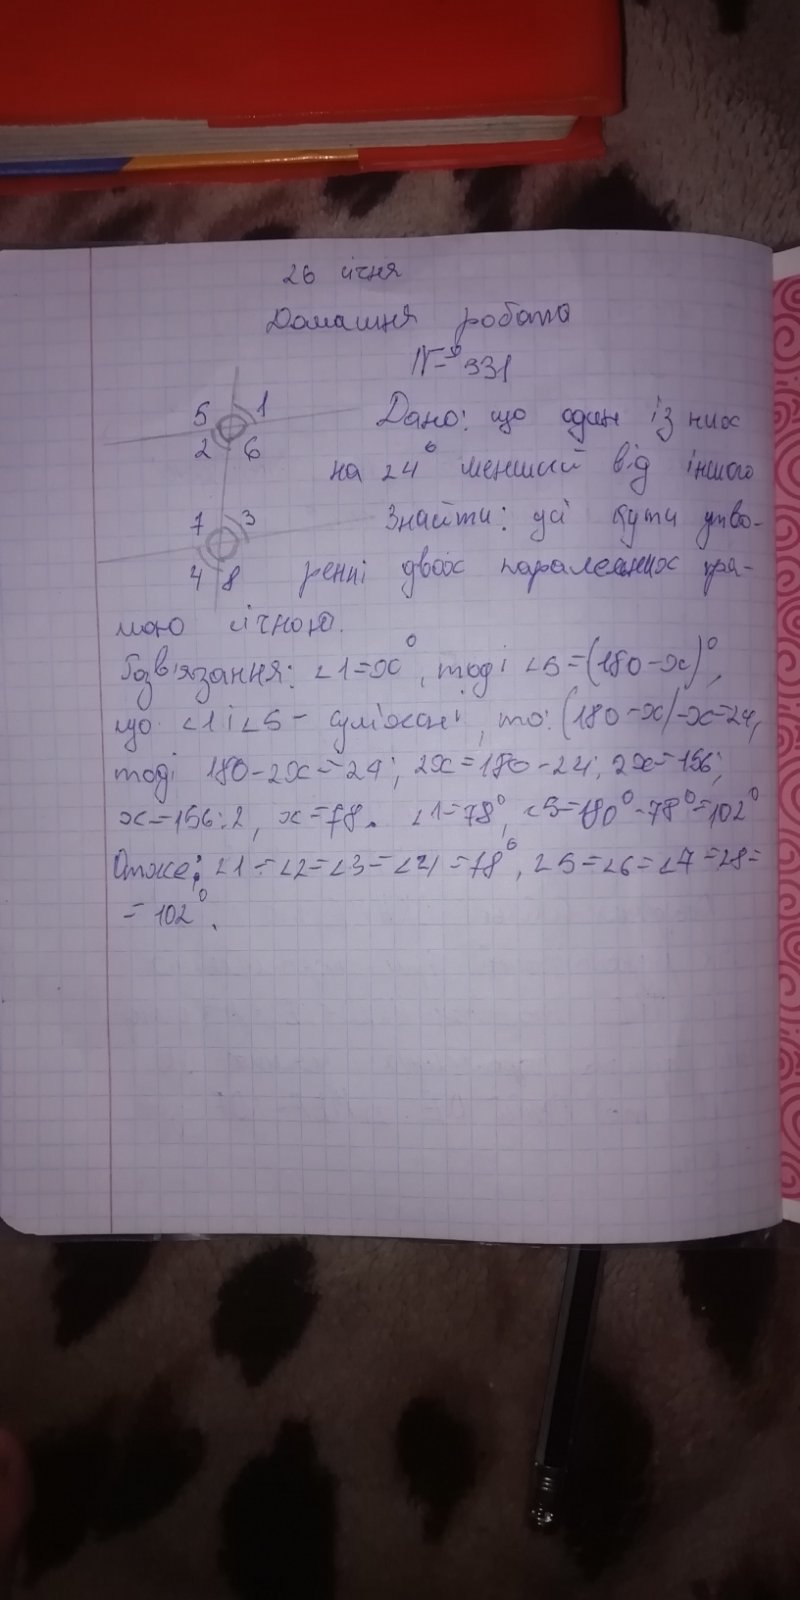 26 січня
Домашня робота
№ 331
5 1 Дано: що один із них
2 6 на 24° менший від іншого
7 3 Знайти: усі кути утво-
4 8 ренні двох паралельних пря-
мою січною.
Розв'язання: ∠1=x°, тоді ∠5=(180-x)°,
що ∠1 і ∠5 - суміжні, то: (180-x)-x=24,
тоді 180-2x=24; 2x=180-24; 2x=156;
x=156:2, x=78. ∠1=78°, ∠5=180°-78°=102°
Отже: ∠1=∠2=∠3=∠4=78°, ∠5=∠6=∠7=∠8=
=102°.